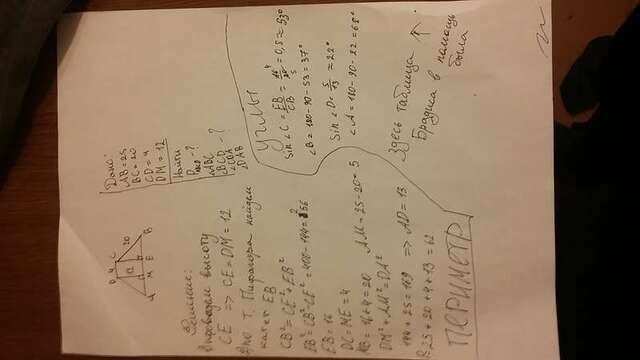 Дано:
AB = 25
BC = 20
CD = 4
DM = 12
Найти
P - ?
∠ABC
∠BCD ?
∠CDA
∠DAB
D 4 C
20
A M E B
Решение:
проведём высоту
CE => CE = DM = 12
По т. Пифагора найдем
катет EB
CB² = CE² + EB²
EB² = CB² - CE² = 400 - 144 = 256
EB = 16
DC = ME = 4
MB = 16 + 4 = 20 AM = 25 - 20 = 5
DM² + AM² = DA²
144 + 25 = 169 => AD = 13
P = 25 + 20 + 4 + 13 = 62
ПЕРИМЕТР
УГЛЫ
Sin∠C = EB/CB = 16/20 = 4/5 = 0,8 ≈ 53°
∠B = 180 - 90 - 53 = 37°
Sin∠D = 5/13 ≈ 22°
∠A = 180 - 90 - 22 = 68°
Здесь таблица
Брадиса в помощь
была